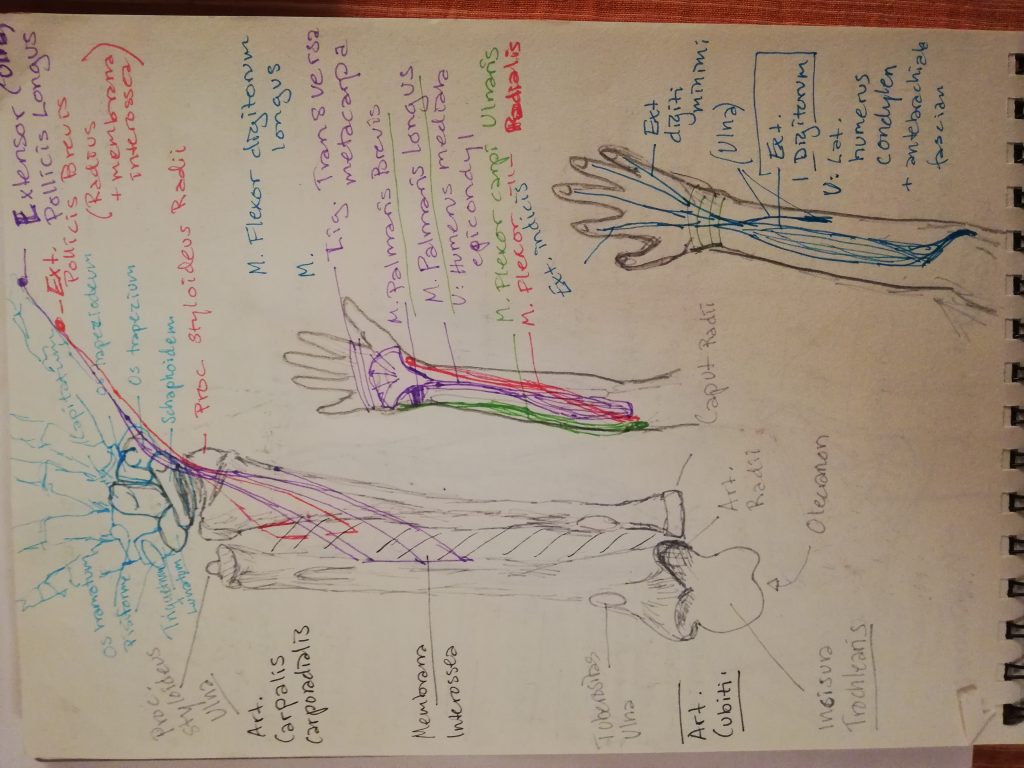 Extensor (Ulna)
Pollicis Longus
Ext.
Pollicis Brevis
(Radius
+ membrana
interossea)
Os trapezium
Schaphoidem
Proc Styloideus Radii
Capitatum
Os hamatum
Pisiforme
Proc.
Styloideus
Ulna
Art.
Carpalis
Carporadialis
Membrana
Interossea
Tuberositas
Ulna
Art.
Cubiti
Insisura
Trochlearis
Olecranon
Art.
Radii
Caput Radii
M. Flexor digitorum
longus
M.
Lig. Transversa
metacarpa
M. Palmaris Brevis
M. Palmaris Longus
M. Palmaris Longus
U: Humerus mediala
epicondyl
M. Flexor carpi Ulnaris
M. Flexor -11- Radialis
Ext. indicis
Ext
digiti
minimi
(Ulna)
Ext.
Digitorum
U: Lat.
humerus
Condylen
+ antebrachiala
fascian